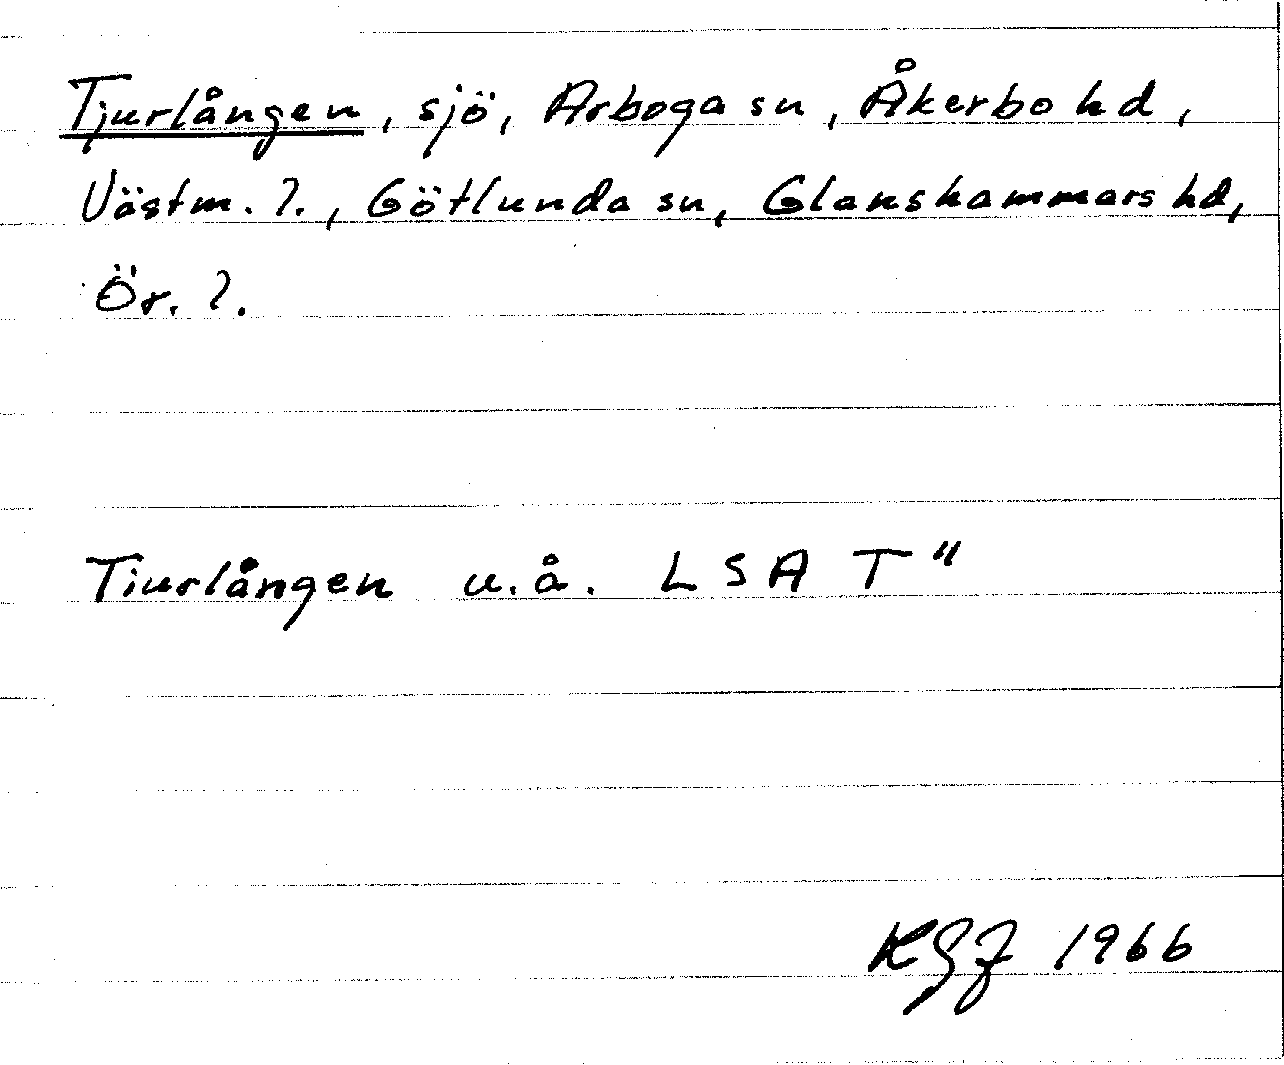 Tjurlången, sjö, Arboga sn, Åkerbo hd,
Västm. l., Götlunda sn, Glanshammars hd,
Ör. l.
Tiurlången u.å. LSA T"
KGJ 1966